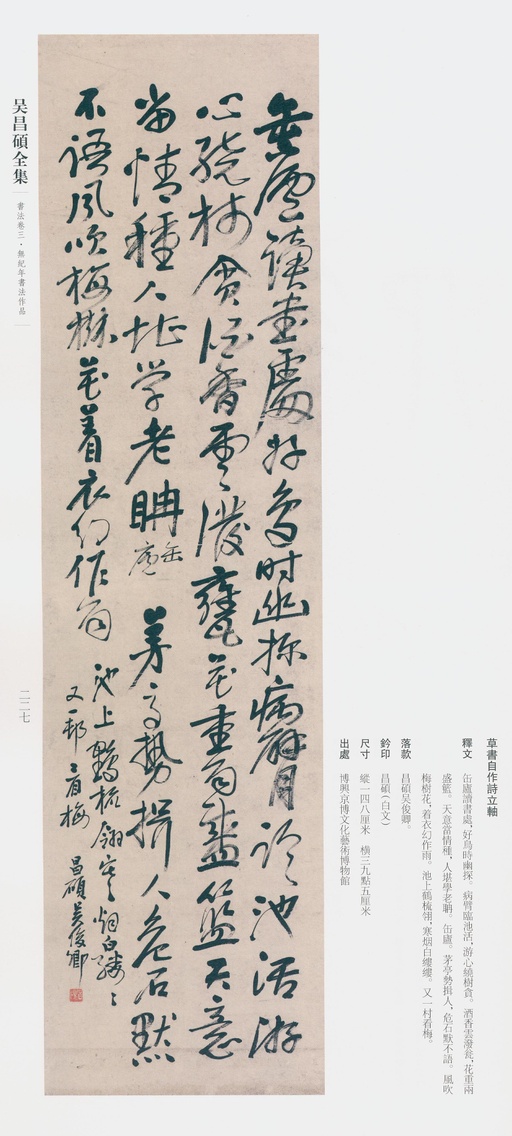 草書自作詩立軸
釋文 缶廬讀書處，好鳥時幽探。病臂臨池活，游心繞樹貪。酒香雲潑瓮，花重雨
盛籃。天意當情種，人堪學老聃。缶廬。茅亭勢揖人，危石默不語。風吹
梅樹花，着衣幻作雨。池上鶴梳翎，寒烟白縷縷。又一村看梅。
落款 昌碩吴俊卿。
鈐印 昌碩（白文）
尺寸 縱一四八厘米 橫三九點五厘米
出處 博興京博文化藝術博物館
缶廬讀書處好鳥時幽探病臂臨池活游
心繞樹貪酒香雲潑甕花重雨盛籃天意
當情種人堪學老聃 缶廬 茅亭勢揖人危石默
不語風吹梅樹花着衣幻作雨 池上鶴梳翎寒烟白縷縷
又一邨看梅 昌碩吴俊卿
吴昌碩全集 書法卷三·無紀年書法作品
二二七